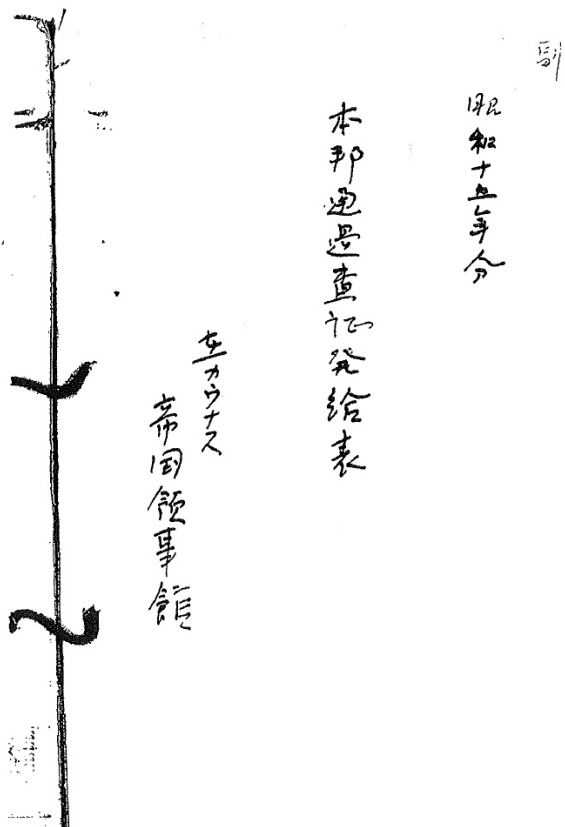 副
昭和十五年分
本邦通過査証発給表
在カウナス
帝国領事館